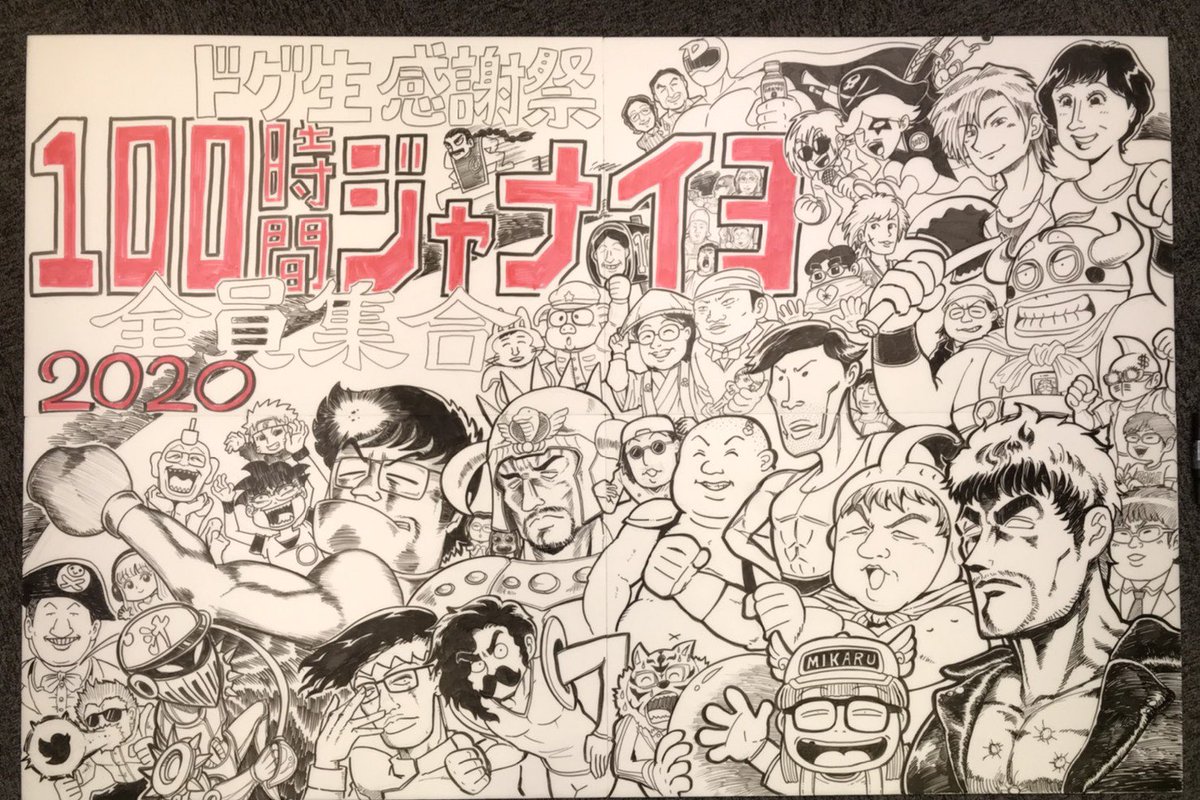 ドグ生感謝祭
100時間ジャナイヨ
全員集合
2020
MIKARU